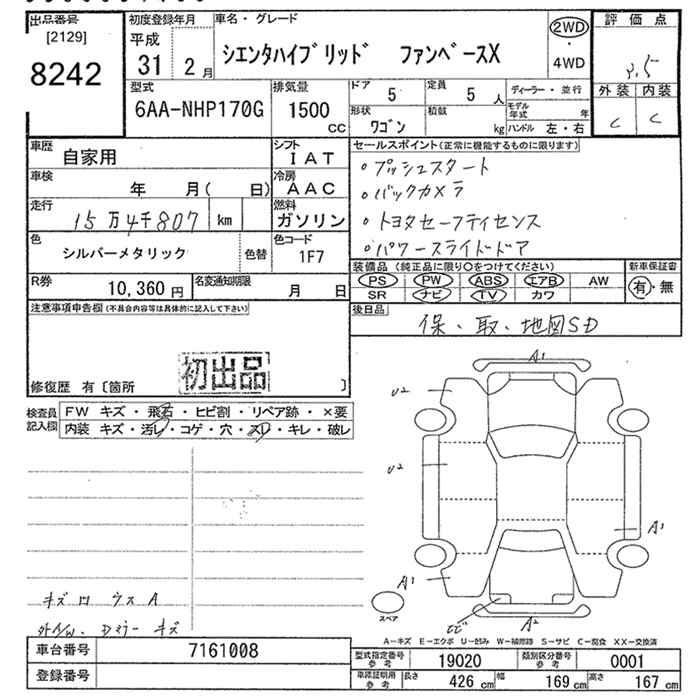 出品番号
[2129]
8242
初度登録年月
平成
31年 2月
車名・グレード
シエンタハイブリッド ファンベースX
2WD
・
4WD
評価点
3.5
外装 内装
C C
型式
6AA-NHP170G
排気量
1500
CC
ドア 5
定員 5人
形状 ワゴン
積載 kg
ディーラー・並行
モデル年式 年
ハンドル 左・右
車歴 自家用
シフト IAT
車検 年 月( 日)
冷房 AAC
走行 15万4千807 km
燃料 ガソリン
色 シルバーメタリック 色替
色コード 1F7
R券 10,360円
名変通知期限 月 日
セールスポイント(正常に機能するものに限ります)
・プッシュスタート
・バックカメラ
・トヨタセーフティセンス
・パワースライドドア
装備品(純正品に限り○をつけてください)
新車保証書
PS PW ABS エアB AW
SR ナビ TV カワ
有・無
後日品
保、取、地図SD
注意事項申告欄(不具合内容等は具体的に記入して下さい)
初出品
修復歴 有〔箇所 〕
検査員記入欄
FW キズ・飛石・ヒビ割・リペア跡・×要
内装 キズ・汚レ・コゲ・穴・スレ・キレ・破レ
A1
U2
U2
A1
A1
スペア
ヒビ
A2
キズロ ウスA
外A/W. Dミラー キズ
A−キズ E−エクボ U−凹み W−補修跡 S−サビ C−腐食 XX−交換済
車台番号 7161008
登録番号
型式指定番号 参考 19020
類別区分番号 参考 0001
車庫証明用 参考
長さ 426cm 幅 169cm 高さ 167cm